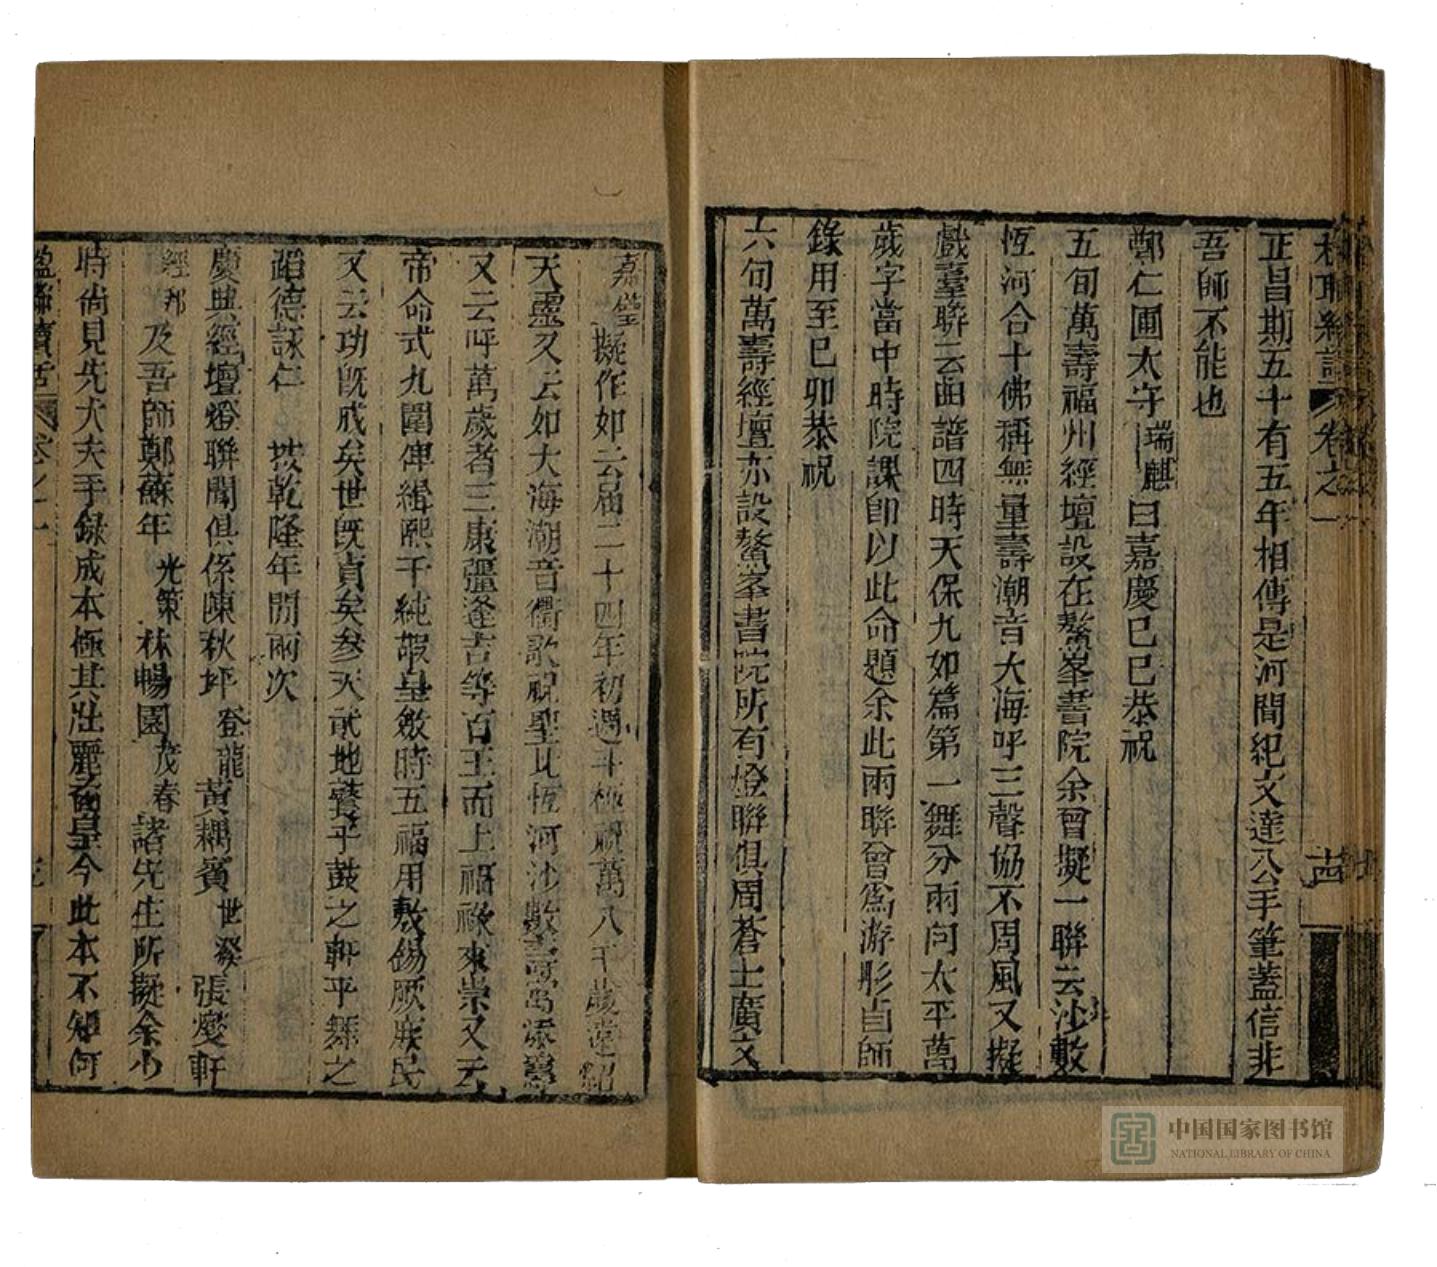 正昌期五十有五年相傳是河間紀文達公手筆蓋信非
吾師不能也
鄭仁圃太守瑞麒曰嘉慶己巳恭祝
五旬萬壽福州經壇設在鰲峯書院余曾擬一聯云沙數
恆河合十佛稱無量壽潮音大海呼三聲協不周風又擬
戲臺聯云曲譜四時天保九如篇第一舞分兩問太平萬
歲字當中時院課即以此命題余此兩聯曾為游彤卣師
錄用至己卯恭祝
六旬萬壽經壇亦設鰲峯書院所有燈聯俱周蒼士廣文
嘉璧擬作如云屆二十四年初週斗極祝萬八千歲定紹
天靈又云如大海潮音衢歌祝聖比恆河沙數壽寓添籌
又云呼萬歲者三康彊逢吉等百王而上福祿來崇又云
帝命式九圍俾緝熙于純嘏皇斂時五福用敷錫厥庶民
又云功既成矣世既貞矣參天貳地蹩乎鼓之軒乎舞之
蹈德詠仁 按乾隆年間兩次
慶典經壇燈聯聞俱係陳秋坪登龍黃耦賓世發張燮軒
經邦及吾師鄭蘇年光策林暢園茂春諸先生所擬余少
時尚見先大夫手錄成本極其壯麗矞皇今此本不知何
楹聯叢話 卷之一
卷之一
十四
中国国家图书馆
NATIONAL LIBRARY OF CHINA